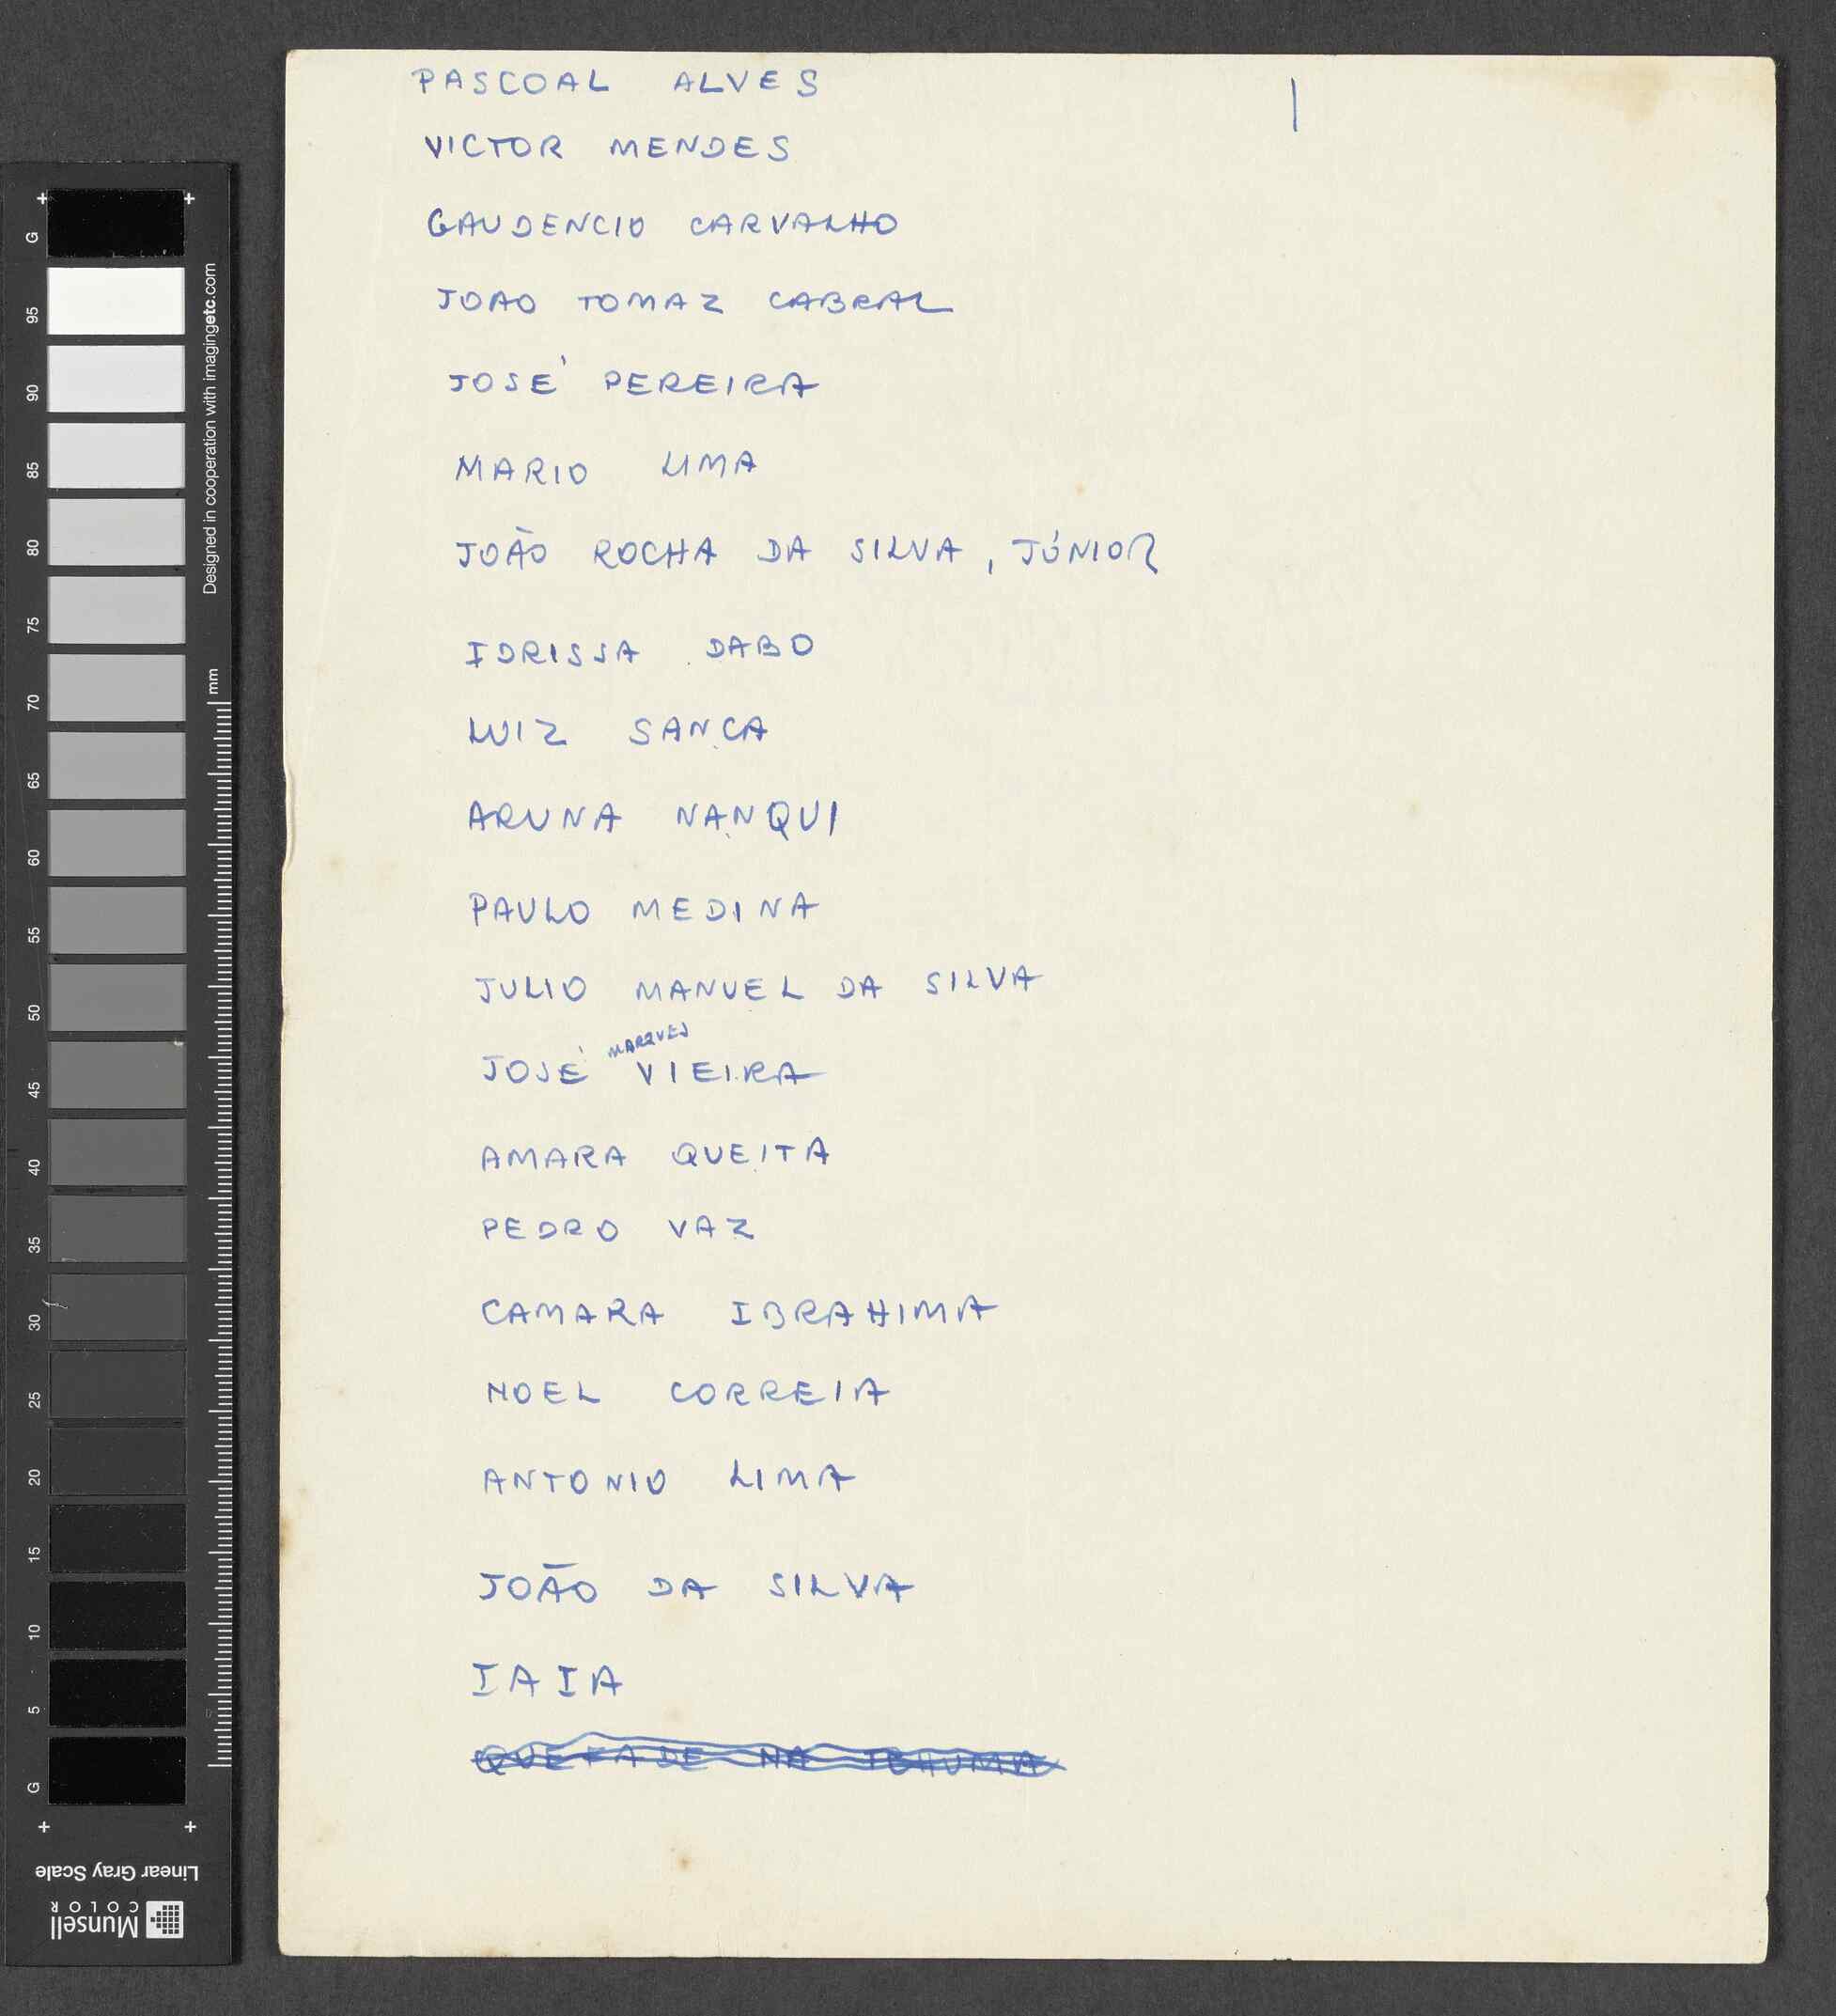 PASCOAL ALVES
VICTOR MENDES
GAUDENCIO CARVALHO
JOAO TOMAZ CABRAL
JOSÉ PEREIRA
MARIO LIMA
JOÃO ROCHA DA SILVA, JÚNIOR
IDRISSA DABO
LUIZ SANCA
ARUNA NANQUI
PAULO MEDINA
JULIO MANUEL DA SILVA
MARQUES
JOSÉ VIEIRA
AMARA QUEITA
PEDRO VAZ
CAMARA IBRAHIMA
NOEL CORREIA
ANTONIO LIMA
JOÃO DA SILVA
IAIA
NA
G 95 90 85 80 75 70 65 60 55 50 45 40 35 30 25 20 15 10 5 G
Designed in cooperation with imagingetc.com
mm
Linear Gray Scale
Munsell
COLOR